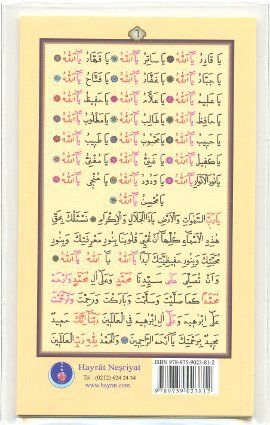 ٦
يَا قَادِرُ يَا اَللهُ ❁ يَا سَاتِرُ يَا اَللهُ ❁ يَا قَهَّارُ يَا اَللهُ
يَا جَبَّارُ يَا اَللهُ ❁ يَا غَفَّارُ يَا اَللهُ ❁ يَا فَتَّاحُ يَا اَللهُ
يَا عَلِيمُ يَا اَللهُ ❁ يَا عَلَّامُ يَا اَللهُ ❁ يَا حَفِيظُ يَا اَللهُ
يَا يَا اَللهُ ❁ يَا غَالِبُ يَا اَللهُ ❁ يَا مَطْلُوبُ يَا اَللهُ
يَا حَبِيبُ يَا اَللهُ ❁ يَا مَحْبُوبُ يَا اَللهُ ❁ يَا طَبِيبُ يَا اَللهُ
يَا كَفِيلُ يَا اَللهُ ❁ يَا غَنِيُّ يَا اَللهُ ❁ يَا مُغْنِي يَا اَللهُ
يَا نُورَ الْاَنْوَارِ يَا اَللهُ ❁ يَا وَدُودُ يَا اَللهُ ❁ يَا يَا اَللهُ
يَا مُحْسِنُ يَا اَللهُ
يَا رَبَّ السَّمٰوَاتِ وَالْاَرْضِ يَا ذَا الْجَلَالِ وَالْاِكْرَامِ ❁ نَسْئَلُكَ بِحَقِّ
هٰذِهِ الْاَسْمَاءِ كُلِّهَا اَنْ تُحْيِيَ قُلُوبَنَا بِنُورِ مَعْرِفَتِكَ وَبِنُورِ
مَحَبَّتِكَ وَبِنُورِ اَبَدًا يَا اَللهُ يَا اَللهُ يَا اَللهُ
وَاَنْ تُصَلِّيَ عَلٰى سَيِّدِنَا مُحَمَّدٍ وَعَلٰى اٰلِ مُحَمَّدٍ وَارْحَمْ
مُحَمَّدًا كَمَا صَلَّيْتَ وَسَلَّمْتَ وَبَارَكْتَ وَرَحِمْتَ
عَلٰى اِبْرٰهِيمَ وَعَلٰى اٰلِ اِبْرٰهِيمَ فِى الْعَالَمِينَ رَبَّنَا اِنَّكَ حَمِيدٌ
مَجِيدٌ بِرَحْمَتِكَ يَا اَرْحَمَ الرَّاحِمِينَ ❁ وَالْحَمْدُ لِلّٰهِ رَبِّ الْعَالَمِينَ
Hayrât Neşriyat
Tel : (0212) 624 24 34
www.hayrat.com
ISBN 978-975-9023-81-2
9 789759 023812